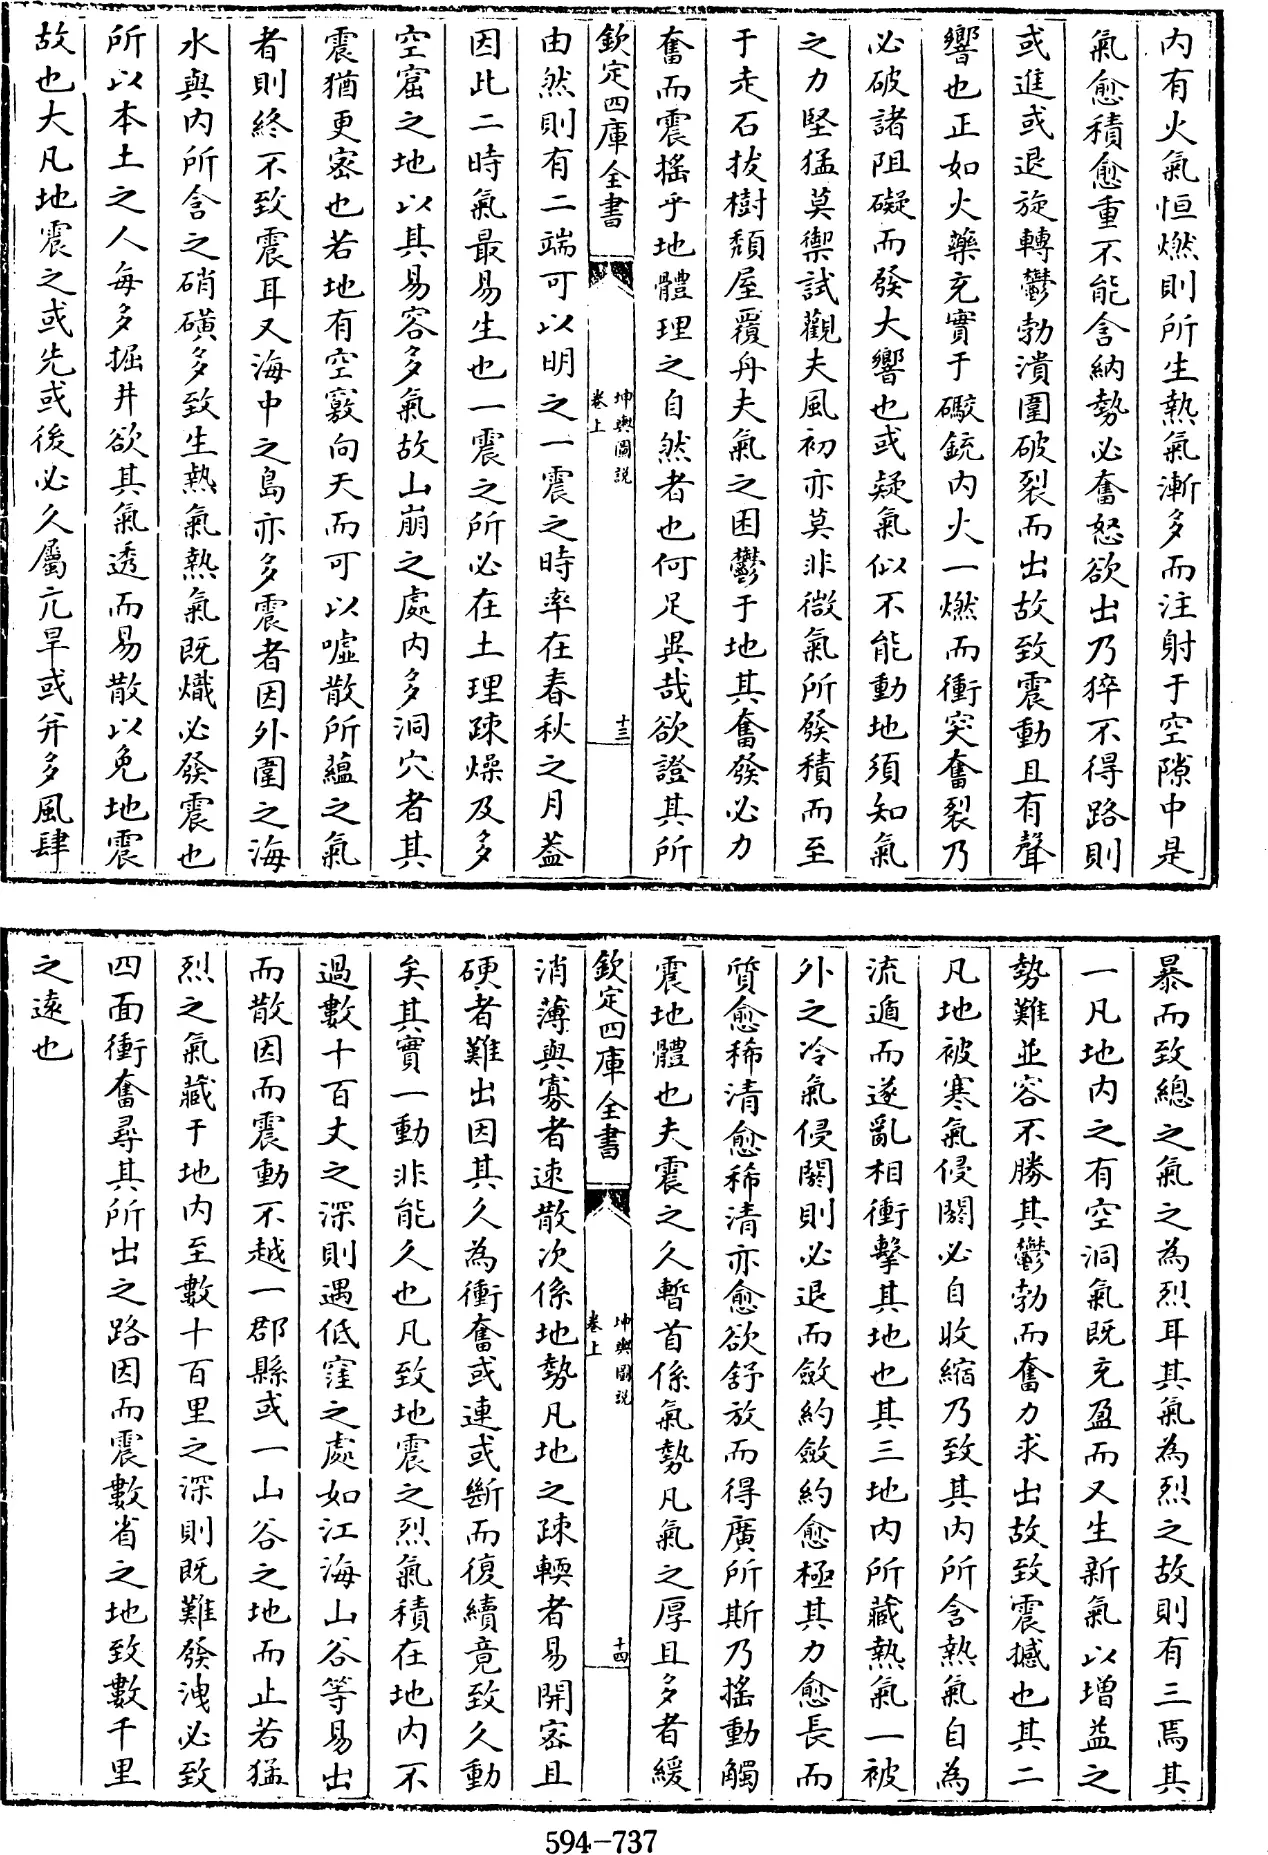 内有火氣恒燃則所生熱氣漸多而注射于空隙中是
氣愈積愈重不能含納勢必奮怒欲出乃猝不得路則
或進或退旋轉鬱勃潰圍破裂而出故致震動且有聲
響也正如火藥充實于礮銃内火一燃而衝突奮裂乃
必破諸阻礙而發大響也或疑氣似不能動地須知氣
之力堅猛莫禦試觀夫風初亦莫非微氣所發積而至
于走石拔樹頹屋覆舟夫氣之困鬱于地其奮發必力
奮而震搖乎地體理之自然者也何足異哉欲證其所
欽定四庫全書
坤輿圖説
卷上
十三
由然則有二端可以明之一震之時率在春秋之月葢
因此二時氣最易生也一震之所必在土理疎燥及多
空窟之地以其易容多氣故山崩之處内多洞穴者其
震猶更宻也若地有空竅向天而可以噓散所藴之氣
者則終不致震耳又海中之島亦多震者因外圍之海
水與内所含之硝磺多致生熱氣熱氣既熾必發震也
所以本土之人每多掘井欲其氣透而易散以免地震
故也大凡地震之或先或後必久屬亢旱或并多風肆
暴而致總之氣之為烈耳其氣為烈之故則有三焉其
一凡地内之有空洞氣既充盈而又生新氣以增益之
勢難並容不勝其鬱勃而奮力求出故致震撼也其二
凡地被寒氣侵閼必自收縮乃致其内所含熱氣自為
流遁而遂亂相衝擊其地也其三地内所藏熱氣一被
外之冷氣侵閼則必退而斂約斂約愈極其力愈長而
質愈稀清愈稀清亦愈欲舒放而得廣所斯乃搖動觸
震地體也夫震之久暫首係氣勢凡氣之厚且多者緩
欽定四庫全書
坤輿圖説
卷上
十四
消薄與寡者速散次係地勢凡地之疎輭者易開宻且
硬者難出因其久為衝奮或連或斷而復續竟致久動
矣其實一動非能久也凡致地震之烈氣積在地内不
過數十百丈之深則遇低窪之處如江海山谷等易出
而散因而震動不越一郡縣或一山谷之地而止若猛
烈之氣藏于地内至數十百里之深則既難發洩必致
四面衝奮尋其所出之路因而震數省之地致數千里
之遠也
594-737